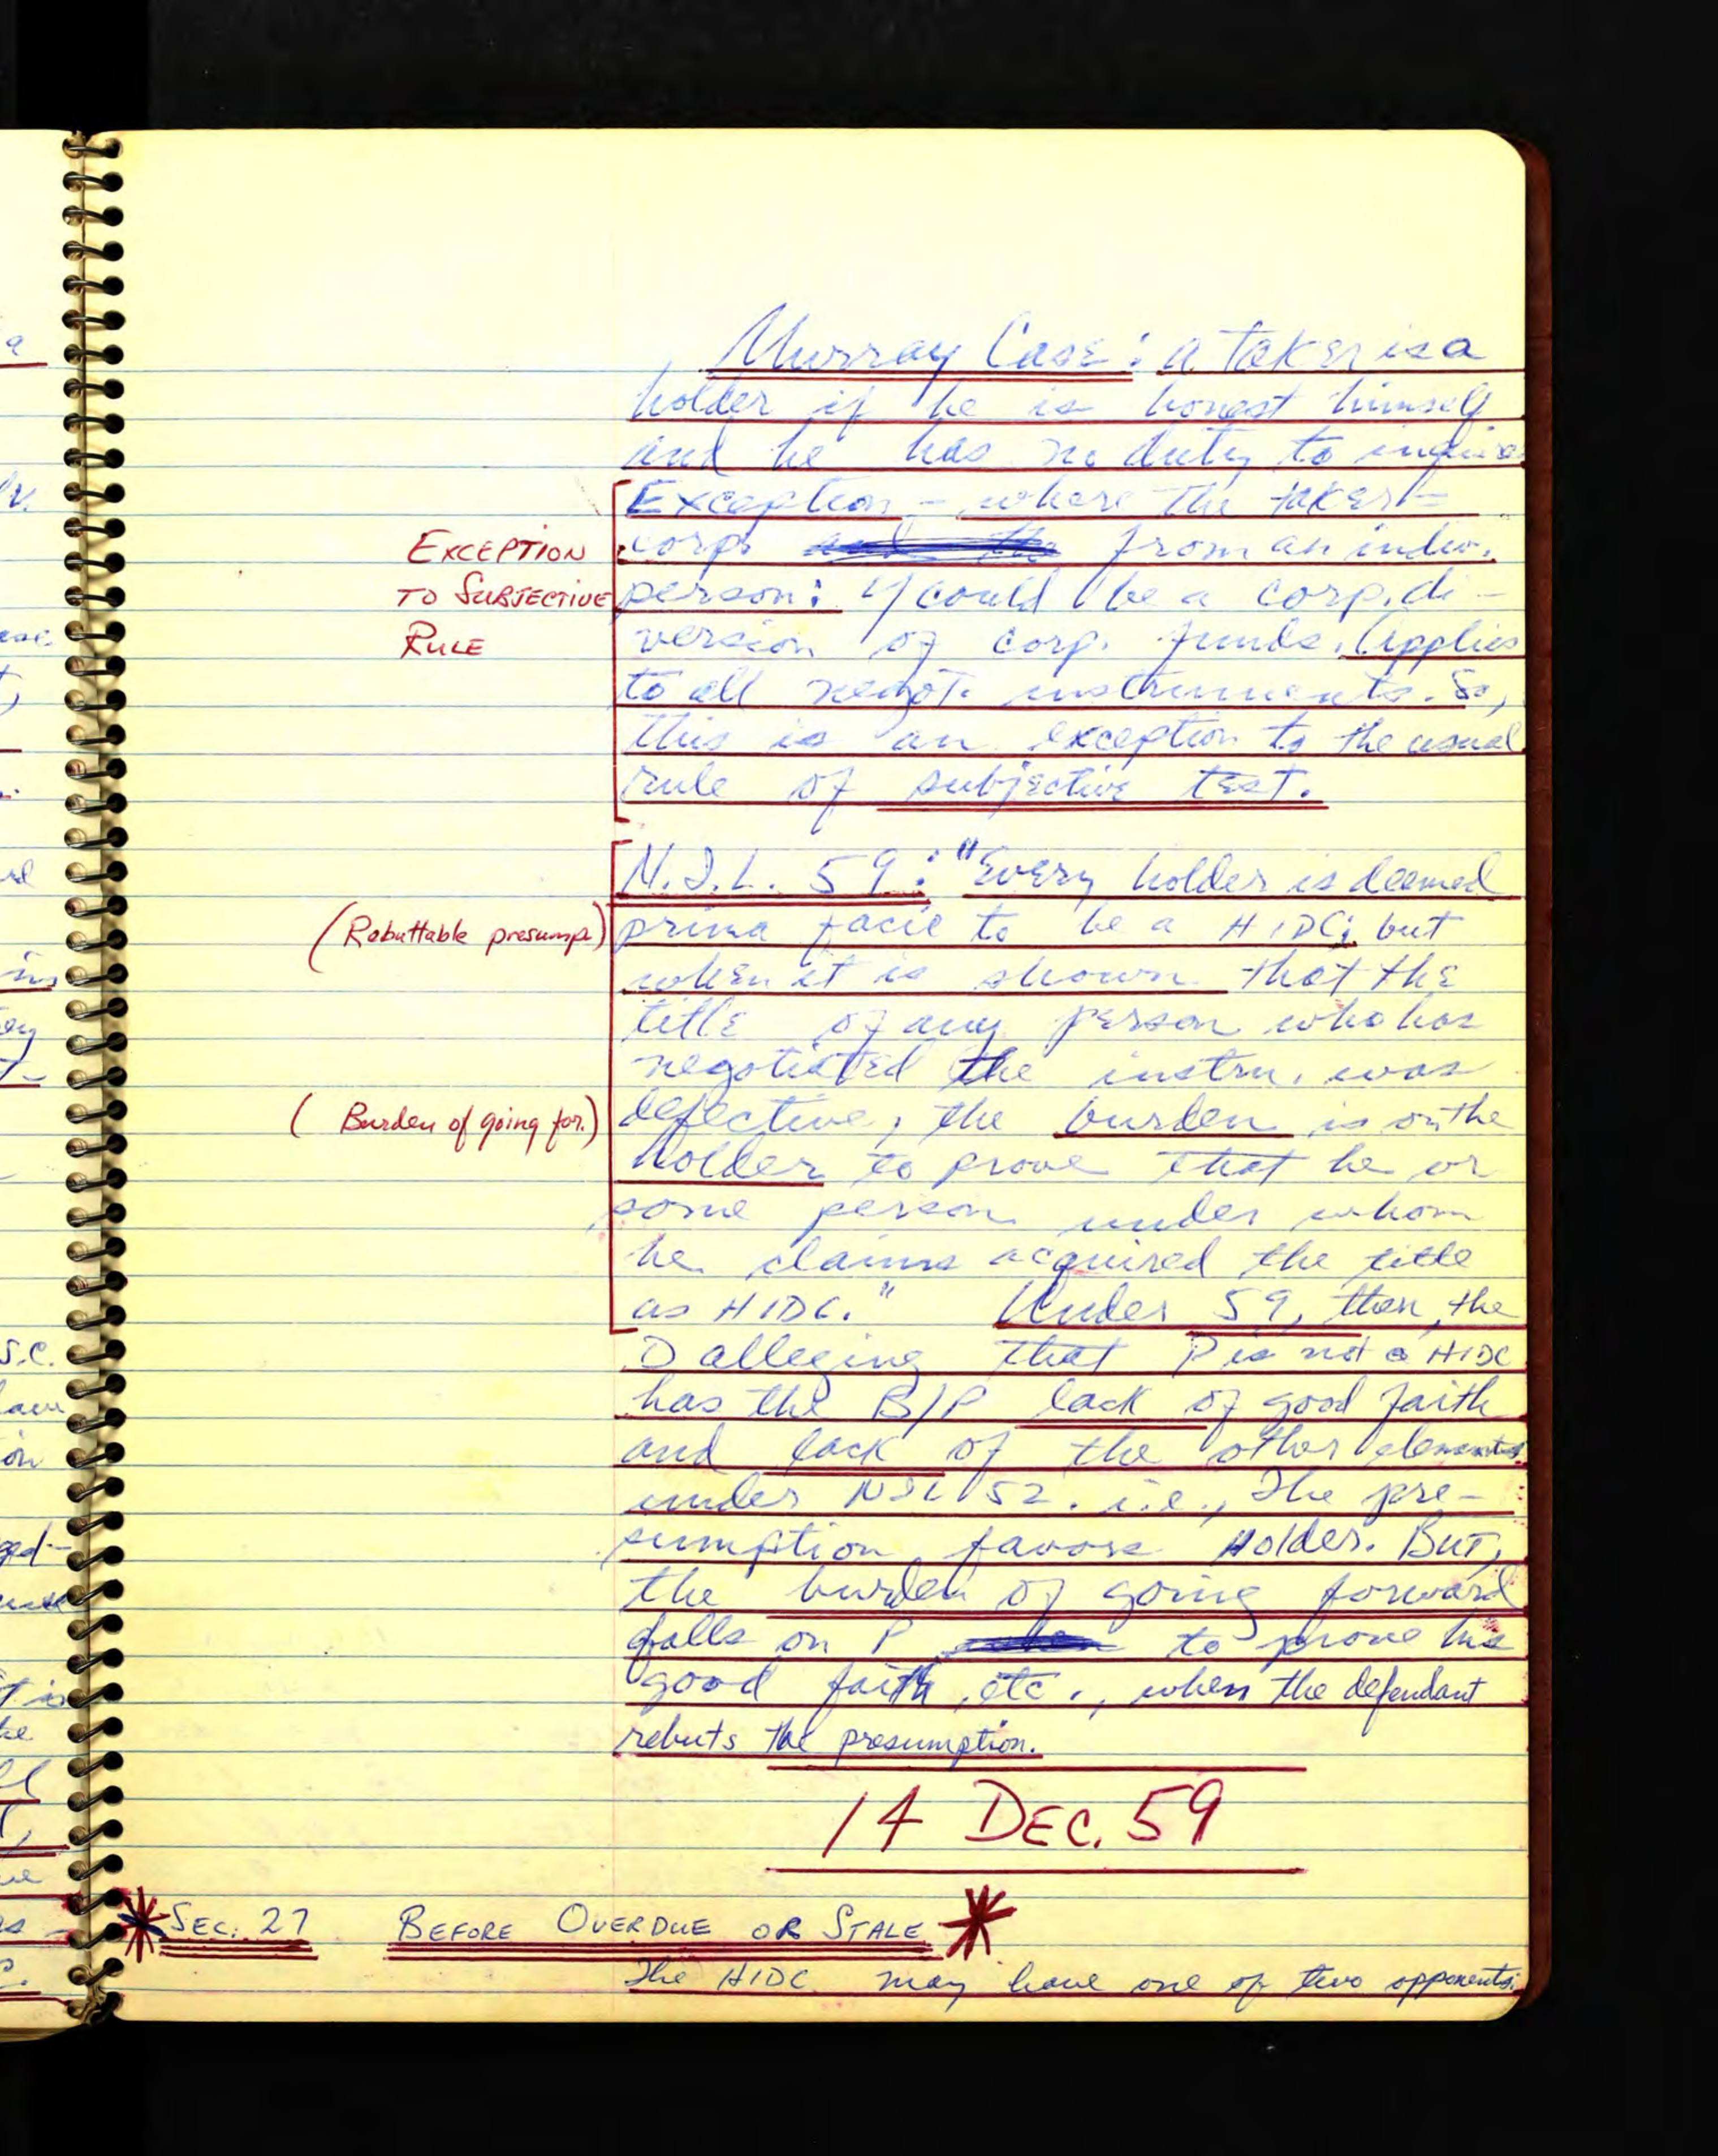 Murray Case: a taker is a
holder if he is honest himself
and he has no duty to inquire
Exception - where the taker -
EXCEPTION corp. from an indiv.
TO SUBJECTIVE person: if could be a corp. di-
RULE version of corp. funds. Applies
to all negot. instruments. So,
this is an exception to the usual
rule of subjective test.
N.I.L. 59: "Every holder is deemed
(Rebuttable presump) prima facie to be a HIDC; but
when it is shown that the
title of any person who has
negotiated the instru. was
(Burden of going for.) defective, the burden is on the
holder to prove that he or
some person under whom
he claims acquired the title
as HIDC." Under 59, then, the
D alleging that P is not a HIDC
has the B/P lack of good faith
and lack of the other elements
under NIL 52. i.e., The pre-
sumption favors Holder. BUT,
the burden of going forward
falls on P to prove his
good faith, etc., when the defendant
rebuts the presumption.
14 DEC. 59
SEC. 27 BEFORE OVERDUE OR STALE
The HIDC may have one of two opponents: